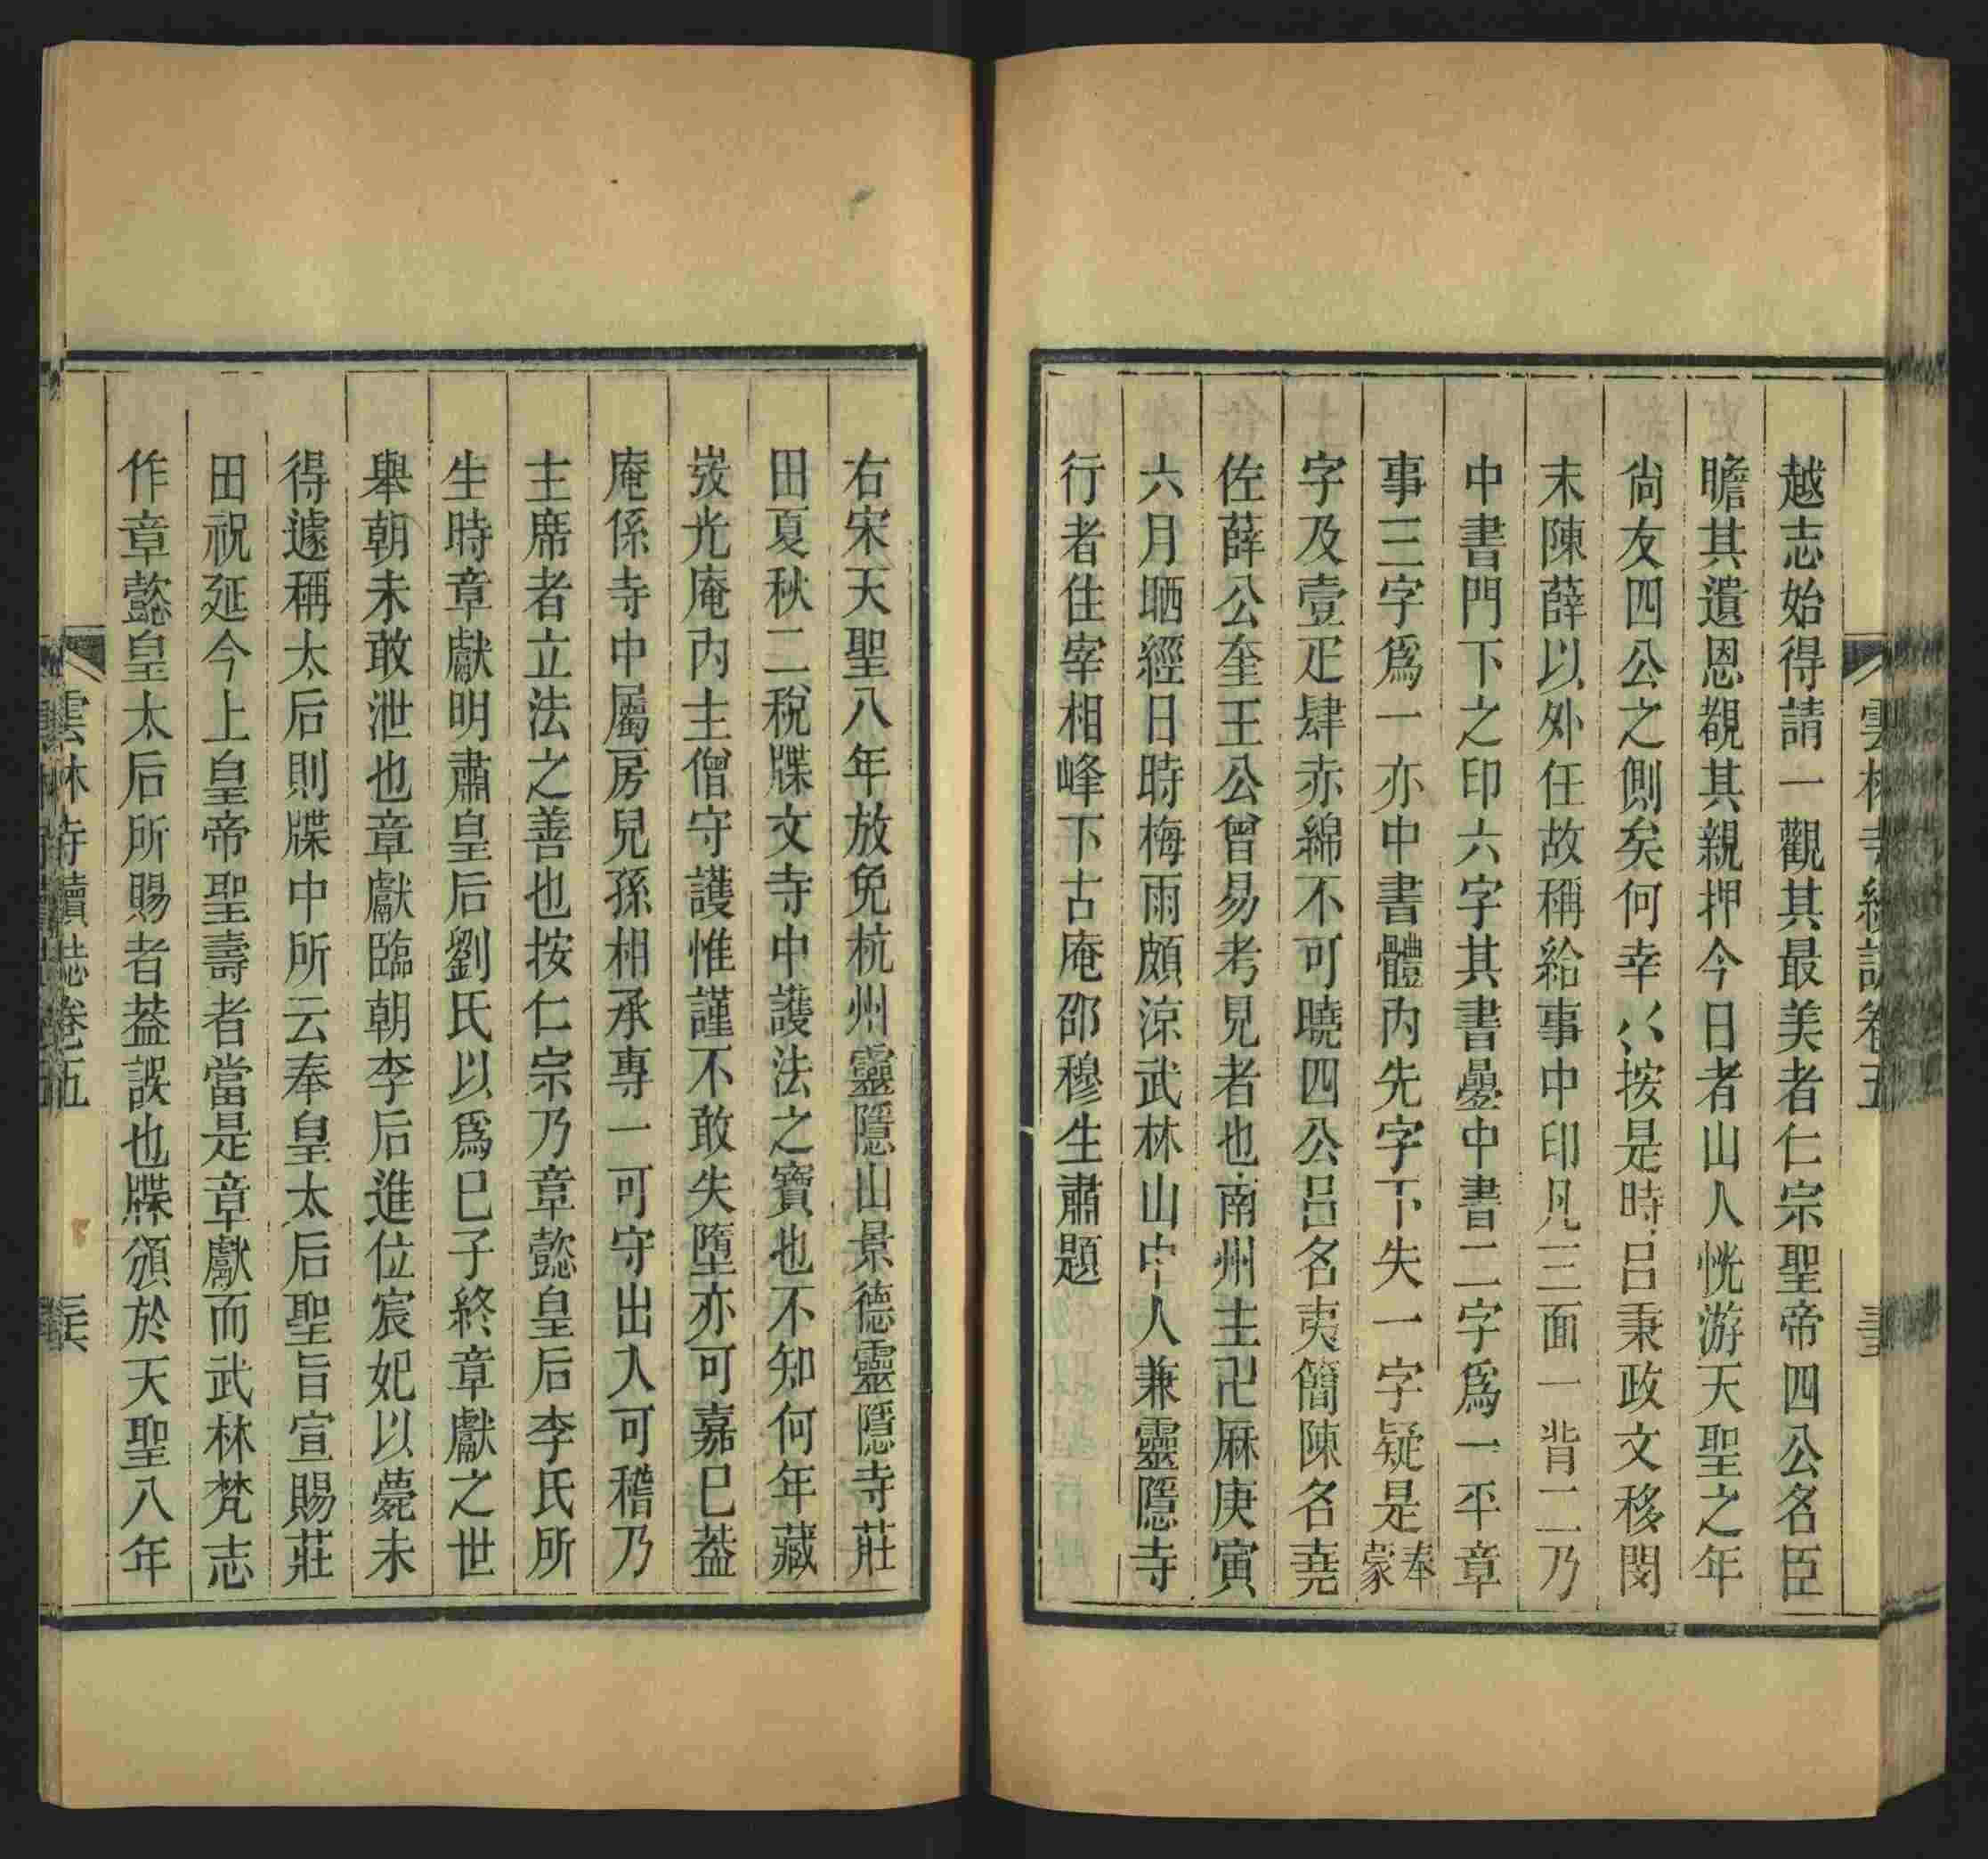 雲林寺續誌卷五
越志始得請一觀其最美者仁宗聖帝四公名臣
瞻其遺恩覩其親押今日者山人恍游天聖之年
尙友四公之側矣何幸〻按是時呂秉政文移閔
末陳薛以外任故稱給事中印凡三面一背二乃
中書門下之印六字其書疊中書二字爲一平章
事三字爲一亦中書體內先字下失一字疑是奉蒙
字及壹疋肆赤綿不可曉四公呂名夷簡陳名堯
佐薛公奎王公曾易考見者也南州主卍厤庚寅
六月晒經日時梅雨頗涼武林山中人兼靈隱寺
行者住宰相峰下古庵邵穆生肅題
右宋天聖八年放免杭州靈隱山景德靈隱寺莊
田夏秋二稅牒文寺中護法之寶也不知何年藏
崁光庵內主僧守護惟謹不敢失墮亦可嘉巳葢
庵係寺中屬房兒孫相承專一可守出入可稽乃
主席者立法之善也按仁宗乃章懿皇后李氏所
生時章獻明肅皇后劉氏以爲巳子終章獻之世
舉朝未敢泄也章獻臨朝李后進位宸妃以薨未
得遽稱太后則牒中所云奉皇太后聖旨宣賜莊
田祝延今上皇帝聖壽者當是章獻而武林梵志
作章懿皇太后所賜者葢誤也牒頒於天聖八年
雲林寺續誌卷五